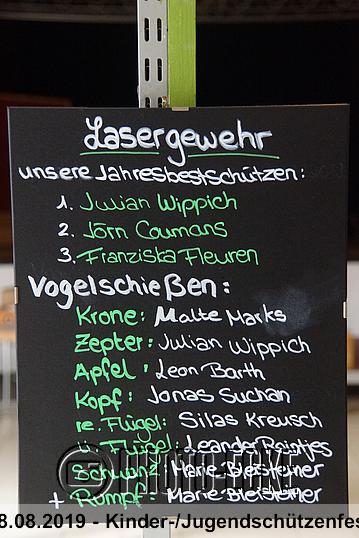 Lasergewehr
unsere Jahresbestschützen:
1. Julian Wippich
2. Jörn Coumans
3. Franziska Fleuren
Vogelschießen:
Krone: Malte Marks
Zepter: Julian Wippich
Apfel: Leon Barth
Kopf: Jonas Suchan
re. Flügel: Silas Kreusch
li. Flügel: Leander
Schwanz: Marie Bleisteiner
+ Rumpf: Marie Bleisteiner
8.08.2019 - Kinder-/Jugendschützenfes